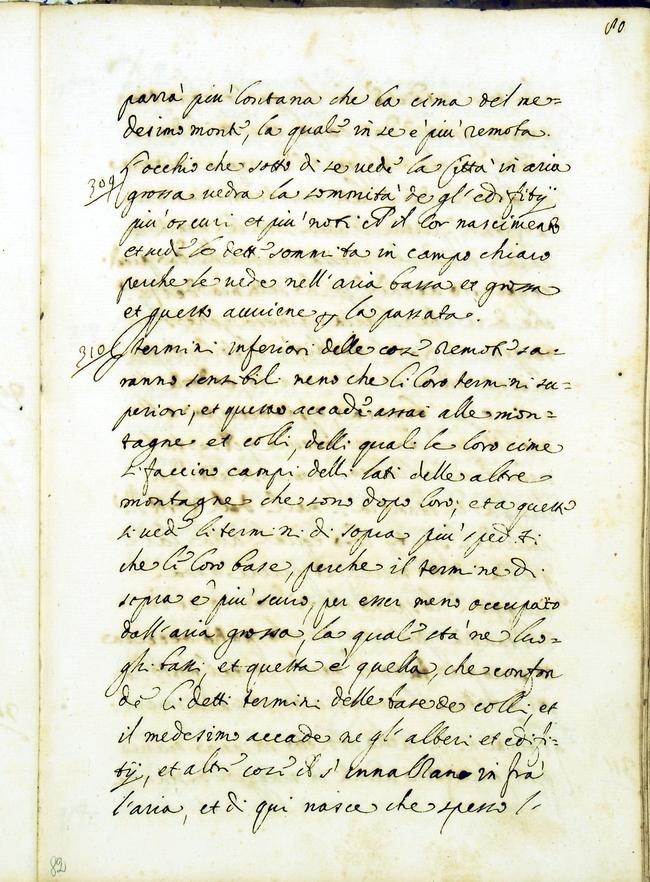 80
parrà più lontana che la cima del me=
desimo monte, la quale in se è più remota.
309 L'occhio che sotto di se vede la Città in aria
grossa vedra la sommità de gl'edifity
più oscuri et più noti ch il lor nascimento
et vede le dette sommita in campo chiaro
perche le vede nell'aria bassa et grossa
et questo avviene p la passata.
310 I termini inferiori delle cose remote sa=
ranno sensibili meno che li loro termini su=
periori, et questo accade assai alle mon=
tagne et colli, delli quali le loro cime
si faccino campi delli lati delle altre
montagne che sono dopo loro, et a queste
si vede li termini di sopra più spediti
che le loro base, perche il termine di
sopra è più scuro, per esser meno occupato
dall'aria grossa, la quale sta ne luo=
ghi bassi, et questa è quella, che confon
de li detti termini delle base de colli, et
il medesimo accade ne gl'alberi et edifi=
ty, et altre cose ch s'innalzano in fra
l'aria, et di qui nasce che spesso l'
82